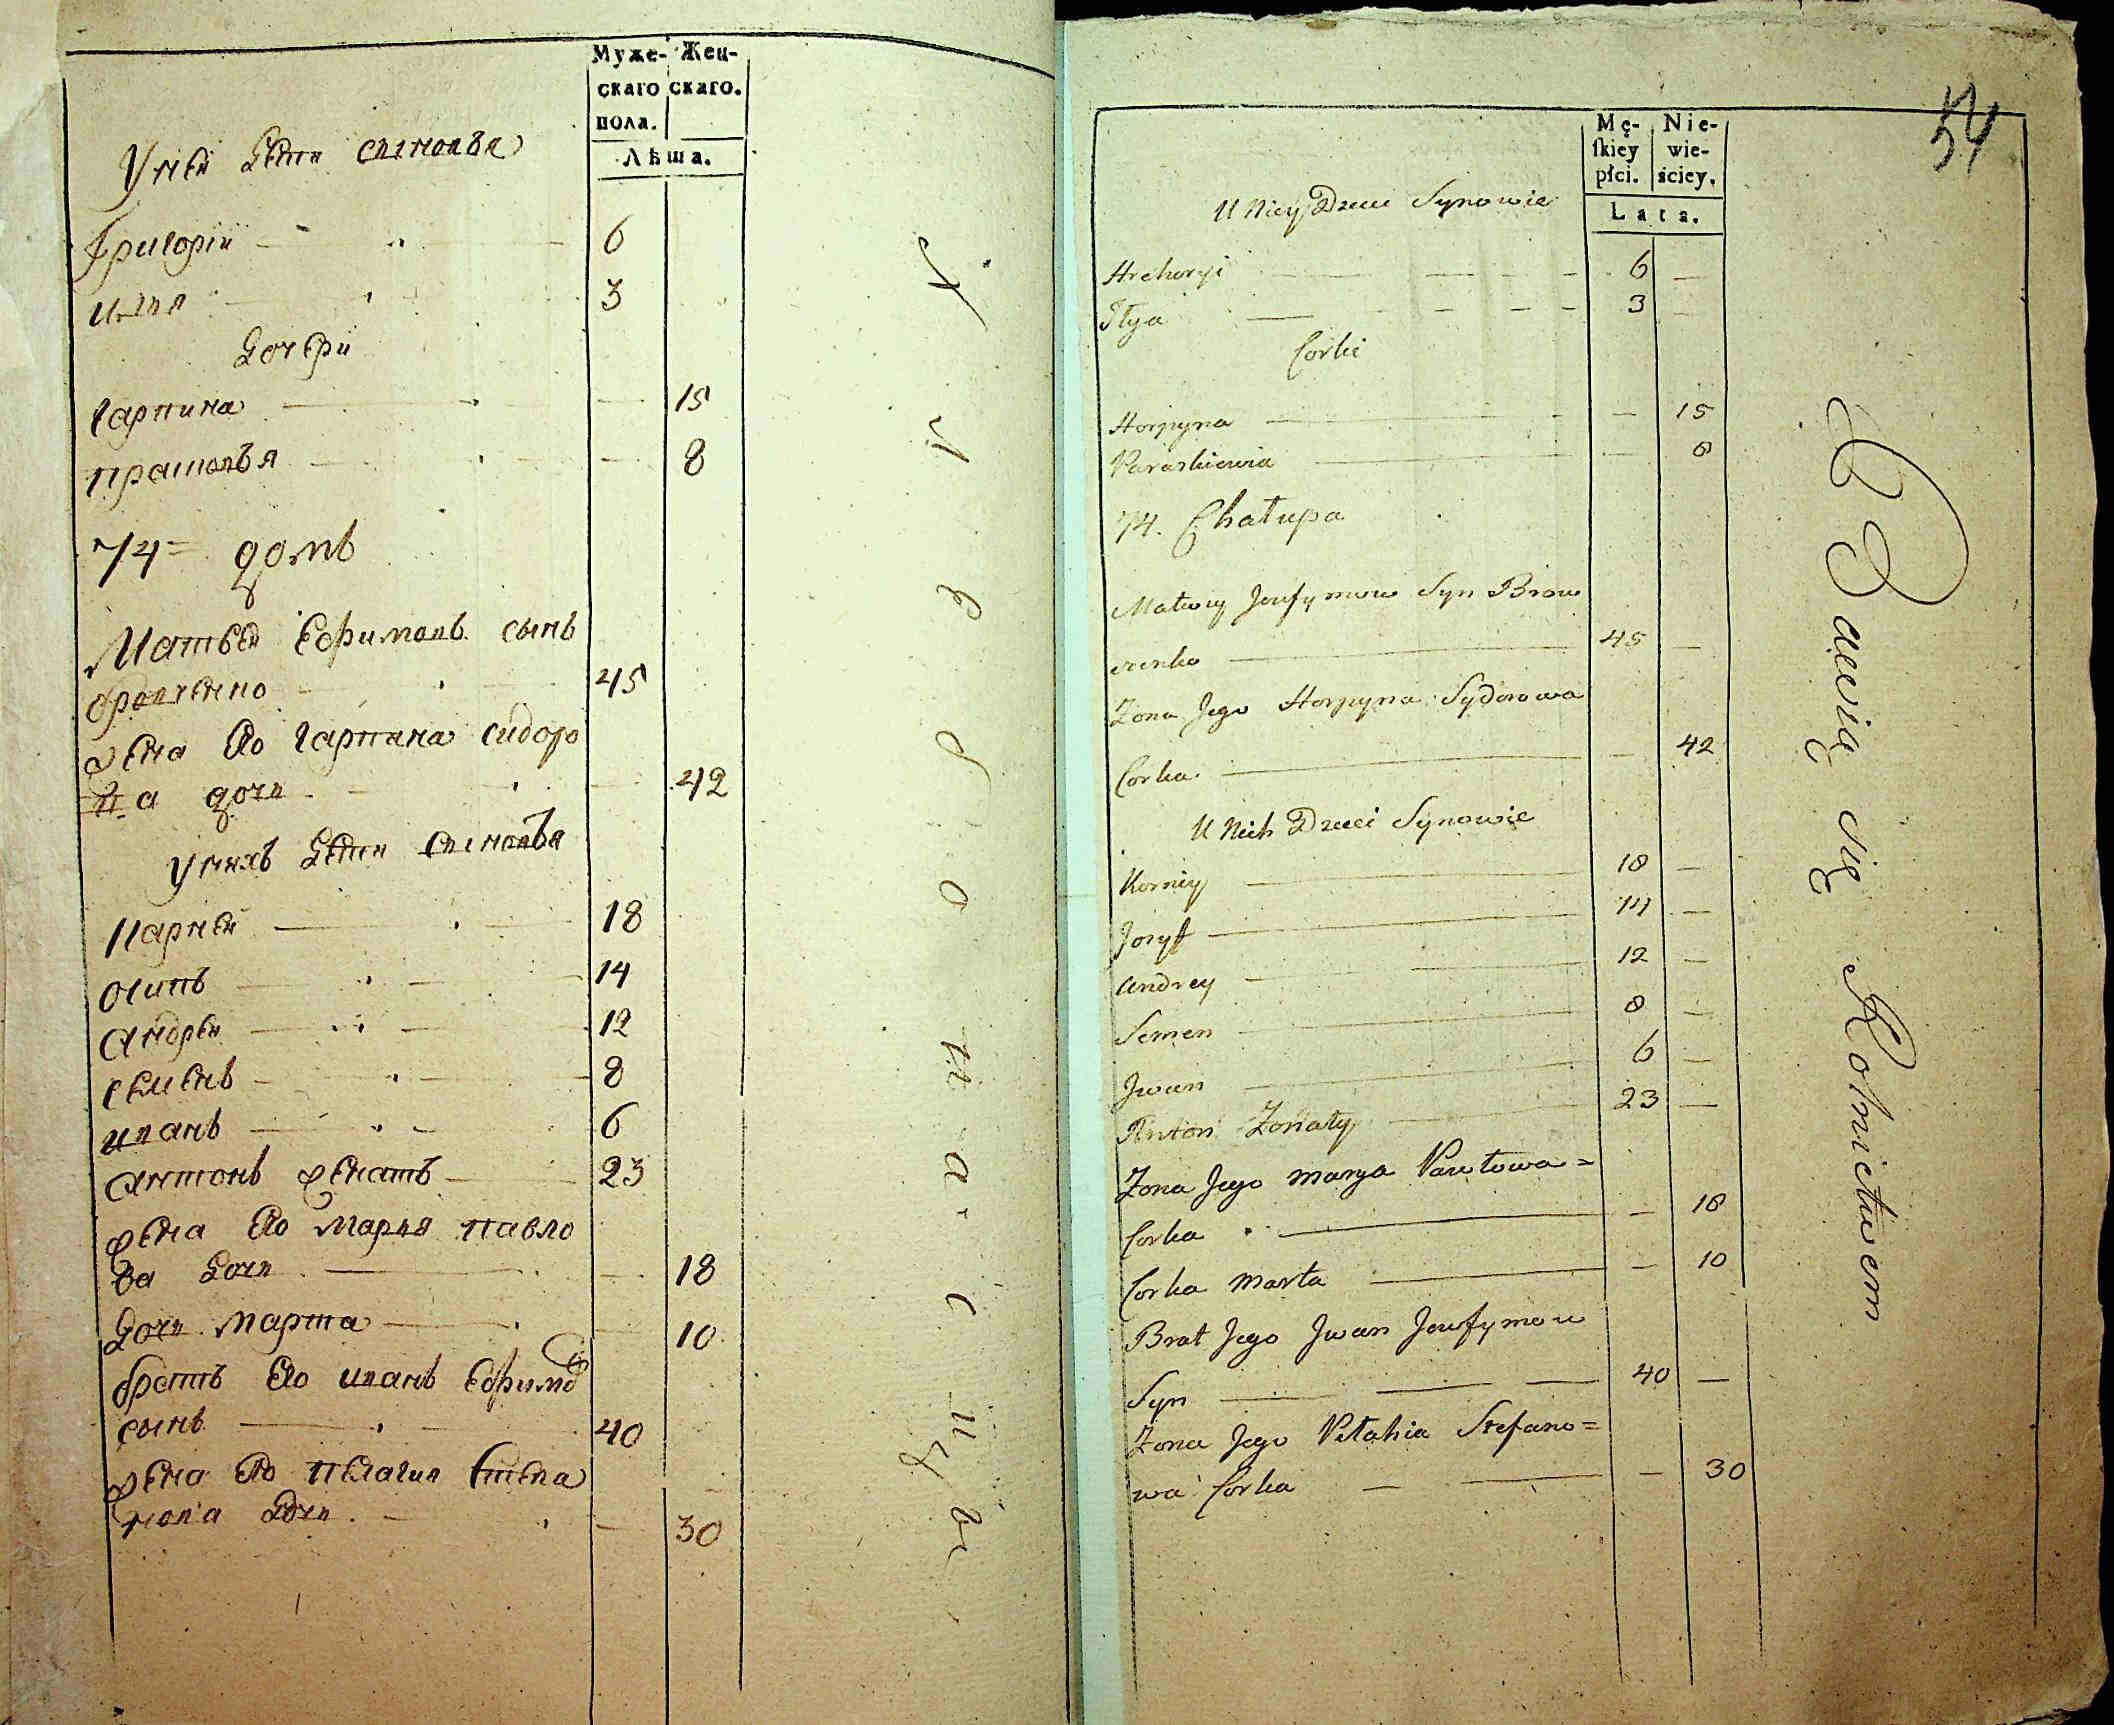 Муже-
скаго
пола.
Жен-
скаго.
Лѣта.
У ней дети сыновья
Григорiй 6
Илья 3
Дочери
Гарпина 15
Прасковья 8
74 = домъ
Матвей Ефимовъ сынъ
Бровченко 45
жена его Гарпина Сидоро
ва дочь 42
У нихъ дети сыновья
Карней 18
Осипъ 14
Андрей 12
Семенъ 8
Иванъ 6
Антонъ женатъ 23
жена его Марья Павло
ва дочь 18
дочь Марта 10
братъ его Иванъ Ефимов
сынъ 40
жена его Пелагия Степа
нова дочь 30
54
Mę-
skiey
płci.
Nie-
wie-
ściey.
Lata.
U Niey Dzieci Synowie
Hrehoryi 6
Jlya 3
Corki
Horpyna 15
Paraskiewia 8
74. Chałupa
Matwiy Jewfymow Syn Brow
czenko 45
Zona Jego Horpyna Sydorowa
Corka 42
U Nich Dzieci Synowie
Korniy 18
Jozyf 14
Andrey 12
Semen 8
Jwan 6
Anton Zonaty 23
Zona Jego Marya Pawłowa=
Corka 18
Corka Marta 10
Brat Jego Jwan Jewfymow
Syn 40
Zona Jego Pelahia Stefano=
wa Corka 30
Bawią się Rolnictwem